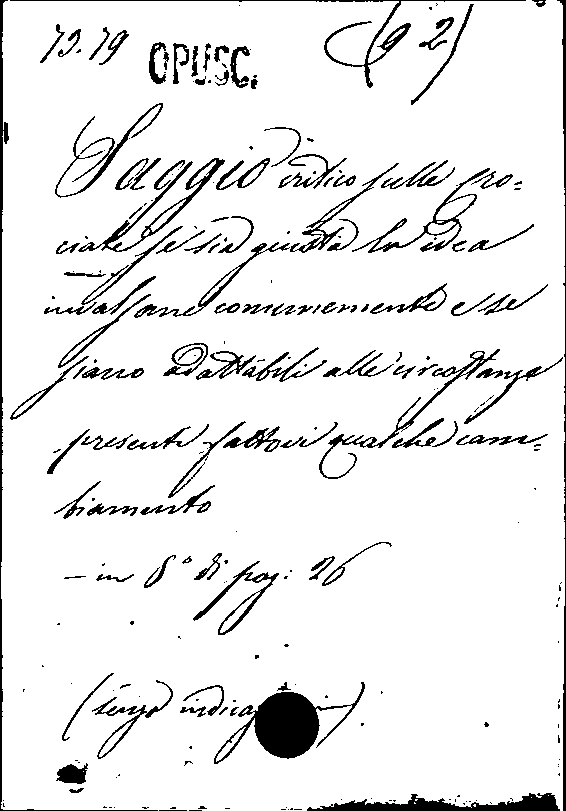 73.79 OPUSC. (92)
Saggio critico sulle cro=
ciate se sia giusta la idea
invalsane comunemente e se
siano adattabili alle circostanze
presenti fattovi qualche cam=
biamento
— in 8° di pag: 26
(senza